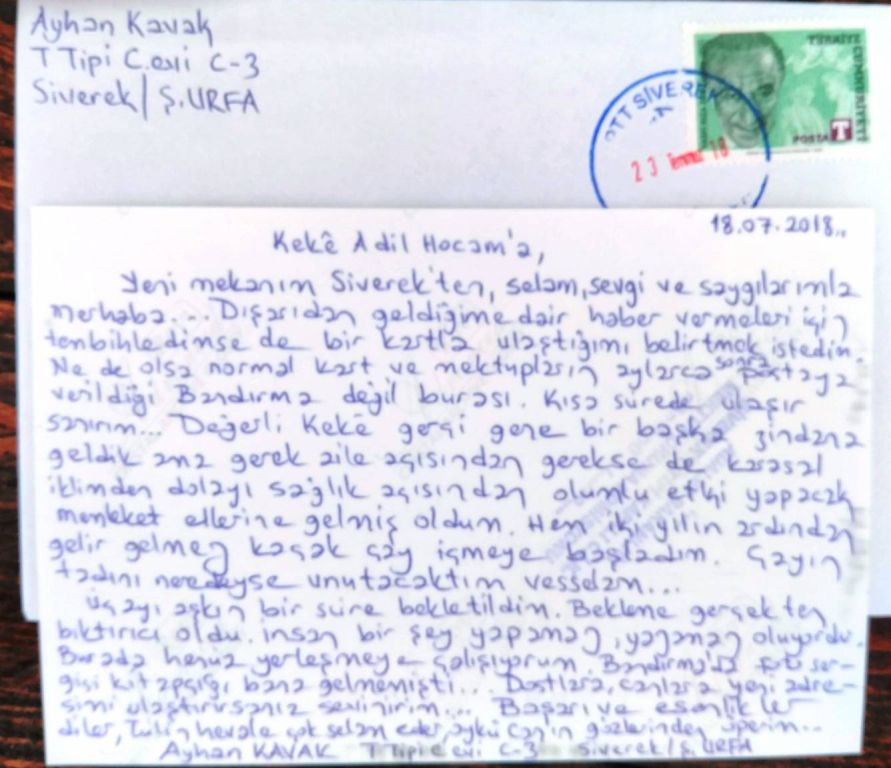 Ayhan Kavak
T Tipi C.evi C-3
Siverek/Ş.URFA
TÜRKİYE
CUMHURİYETİ
POSTA T
PTT SİVEREK
23 Temmuz 18
18.07.2018..
Kekê Adil Hocam'a,
Yeni mekanım Siverek'ten, selam, sevgi ve saygılarımla
merhaba... Dışarıdan geldiğime dair haber vermeleri için
tembihledimse de bir kartla ulaştığımı belirtmek istedim.
Ne de olsa normal kart ve mektupların aylarca sonra postaya
verildiği Bandırma değil burası. Kısa sürede ulaşır
sanırım... Değerli Kekê gerçi gene bir başka zindana
geldik ama gerek aile açısından gerekse de karasal
iklimden dolayı sağlık açısından olumlu etki yapacak
memleket ellerine gelmiş oldum. Hem iki yılın ardından
gelir gelmez kaçak çay içmeye başladım. Çayın
tadını neredeyse unutacaktım vesselam...
Üç ayı aşkın bir süre bekletildim. Bekleme gerçekten
bıktırıcı oldu. İnsan bir şey yapamaz, yazamaz oluyordu.
Burada henüz yerleşmeye çalışıyorum. Bandırma'da foto ser-
gisi kitapçığı bana gelmemişti... Dostlara, canlara yeni adre-
simi ulaştırırsanız sevinirim... Başarı ve esenlikler
diler, Tülin hevale çok selam eder, aykü can'ın gözlerinden öperim...
Ayhan KAVAK T Tipi C evi C-3 Siverek/Ş.URFA